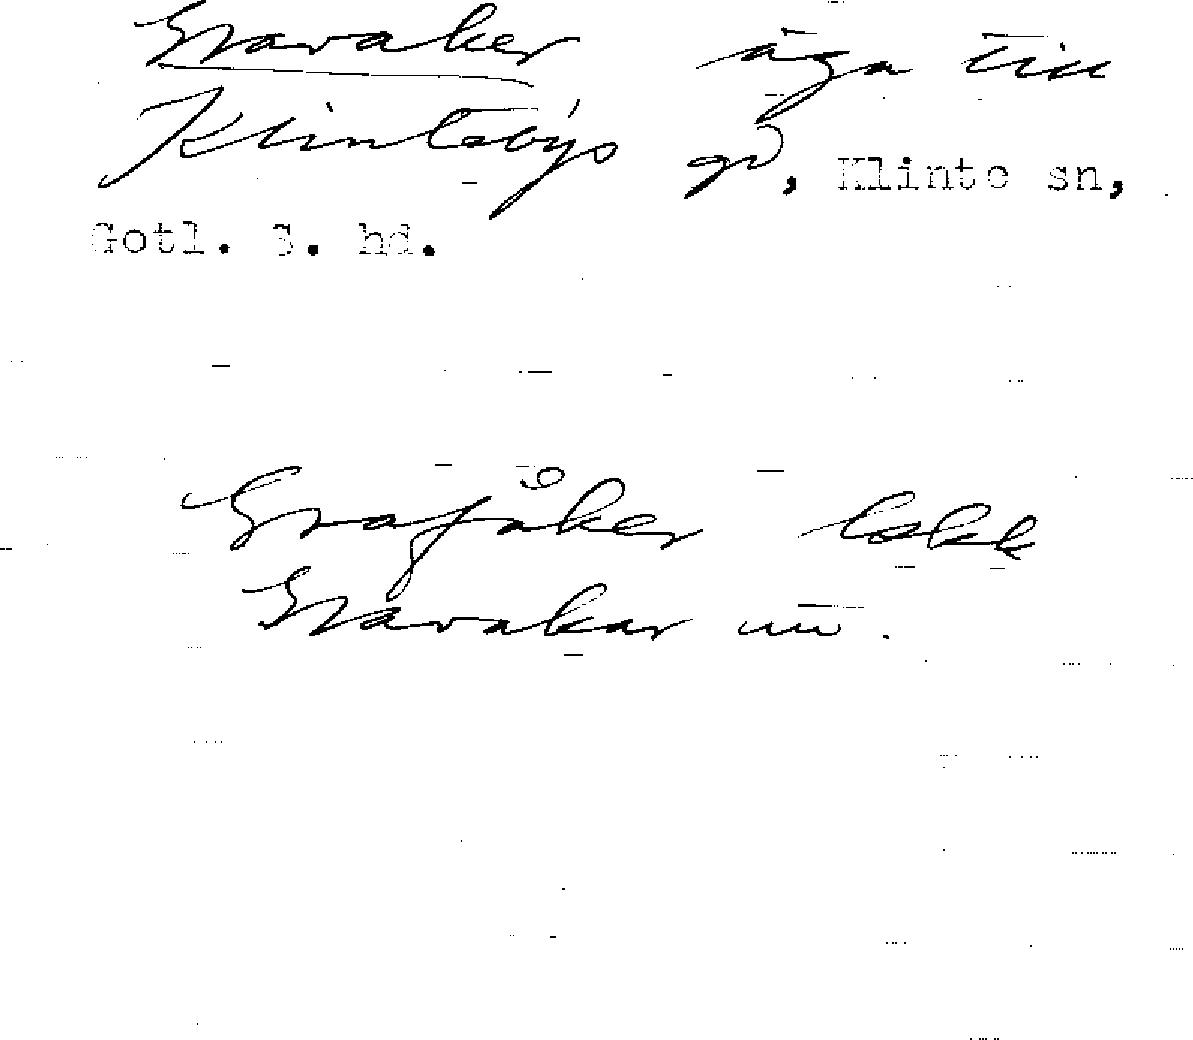 Gravaker äga till
Klintebys gd, Klinte sn,
Gotl. S. hd.
Grafåker Lskk
Gravakar uu.